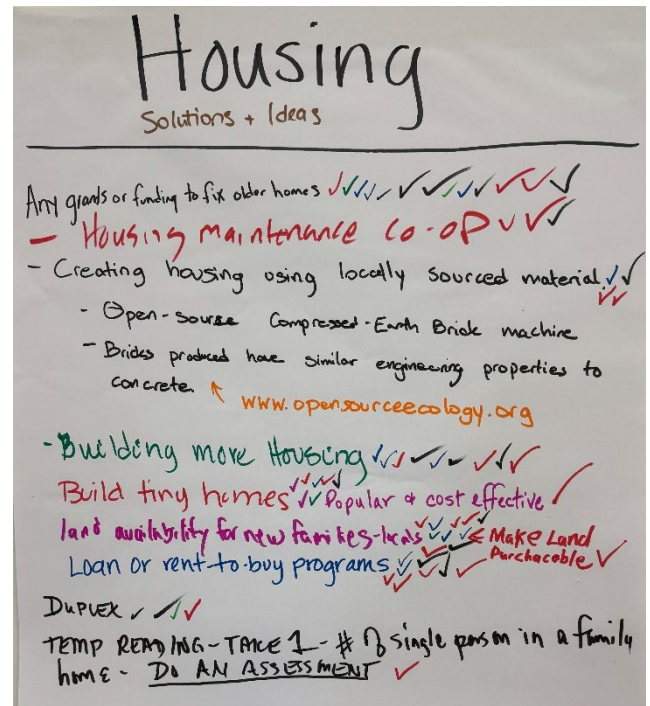 Housing
Solutions + Ideas
Any grants or funding to fix older homes
- Housing maintenance co-op
- Creating housing using locally sourced material
- Open-source Compressed-Earth Brick machine
- Bricks produced have similar engineering properties to
concrete
www.opensourceecology.org
- Building more Housing
Build tiny homes Popular & cost effective
land availability for new families-locals Make Land
Purchacable
Loan or rent-to-buy programs
DUPLEX
TEMP READING - TAKE 1 - # of single person in a family
home - DO AN ASSESSMENT